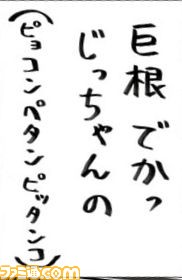 巨根 でかっ
じっちゃんの
(ピョコンペタンピッタンコ)
ファミ通.com